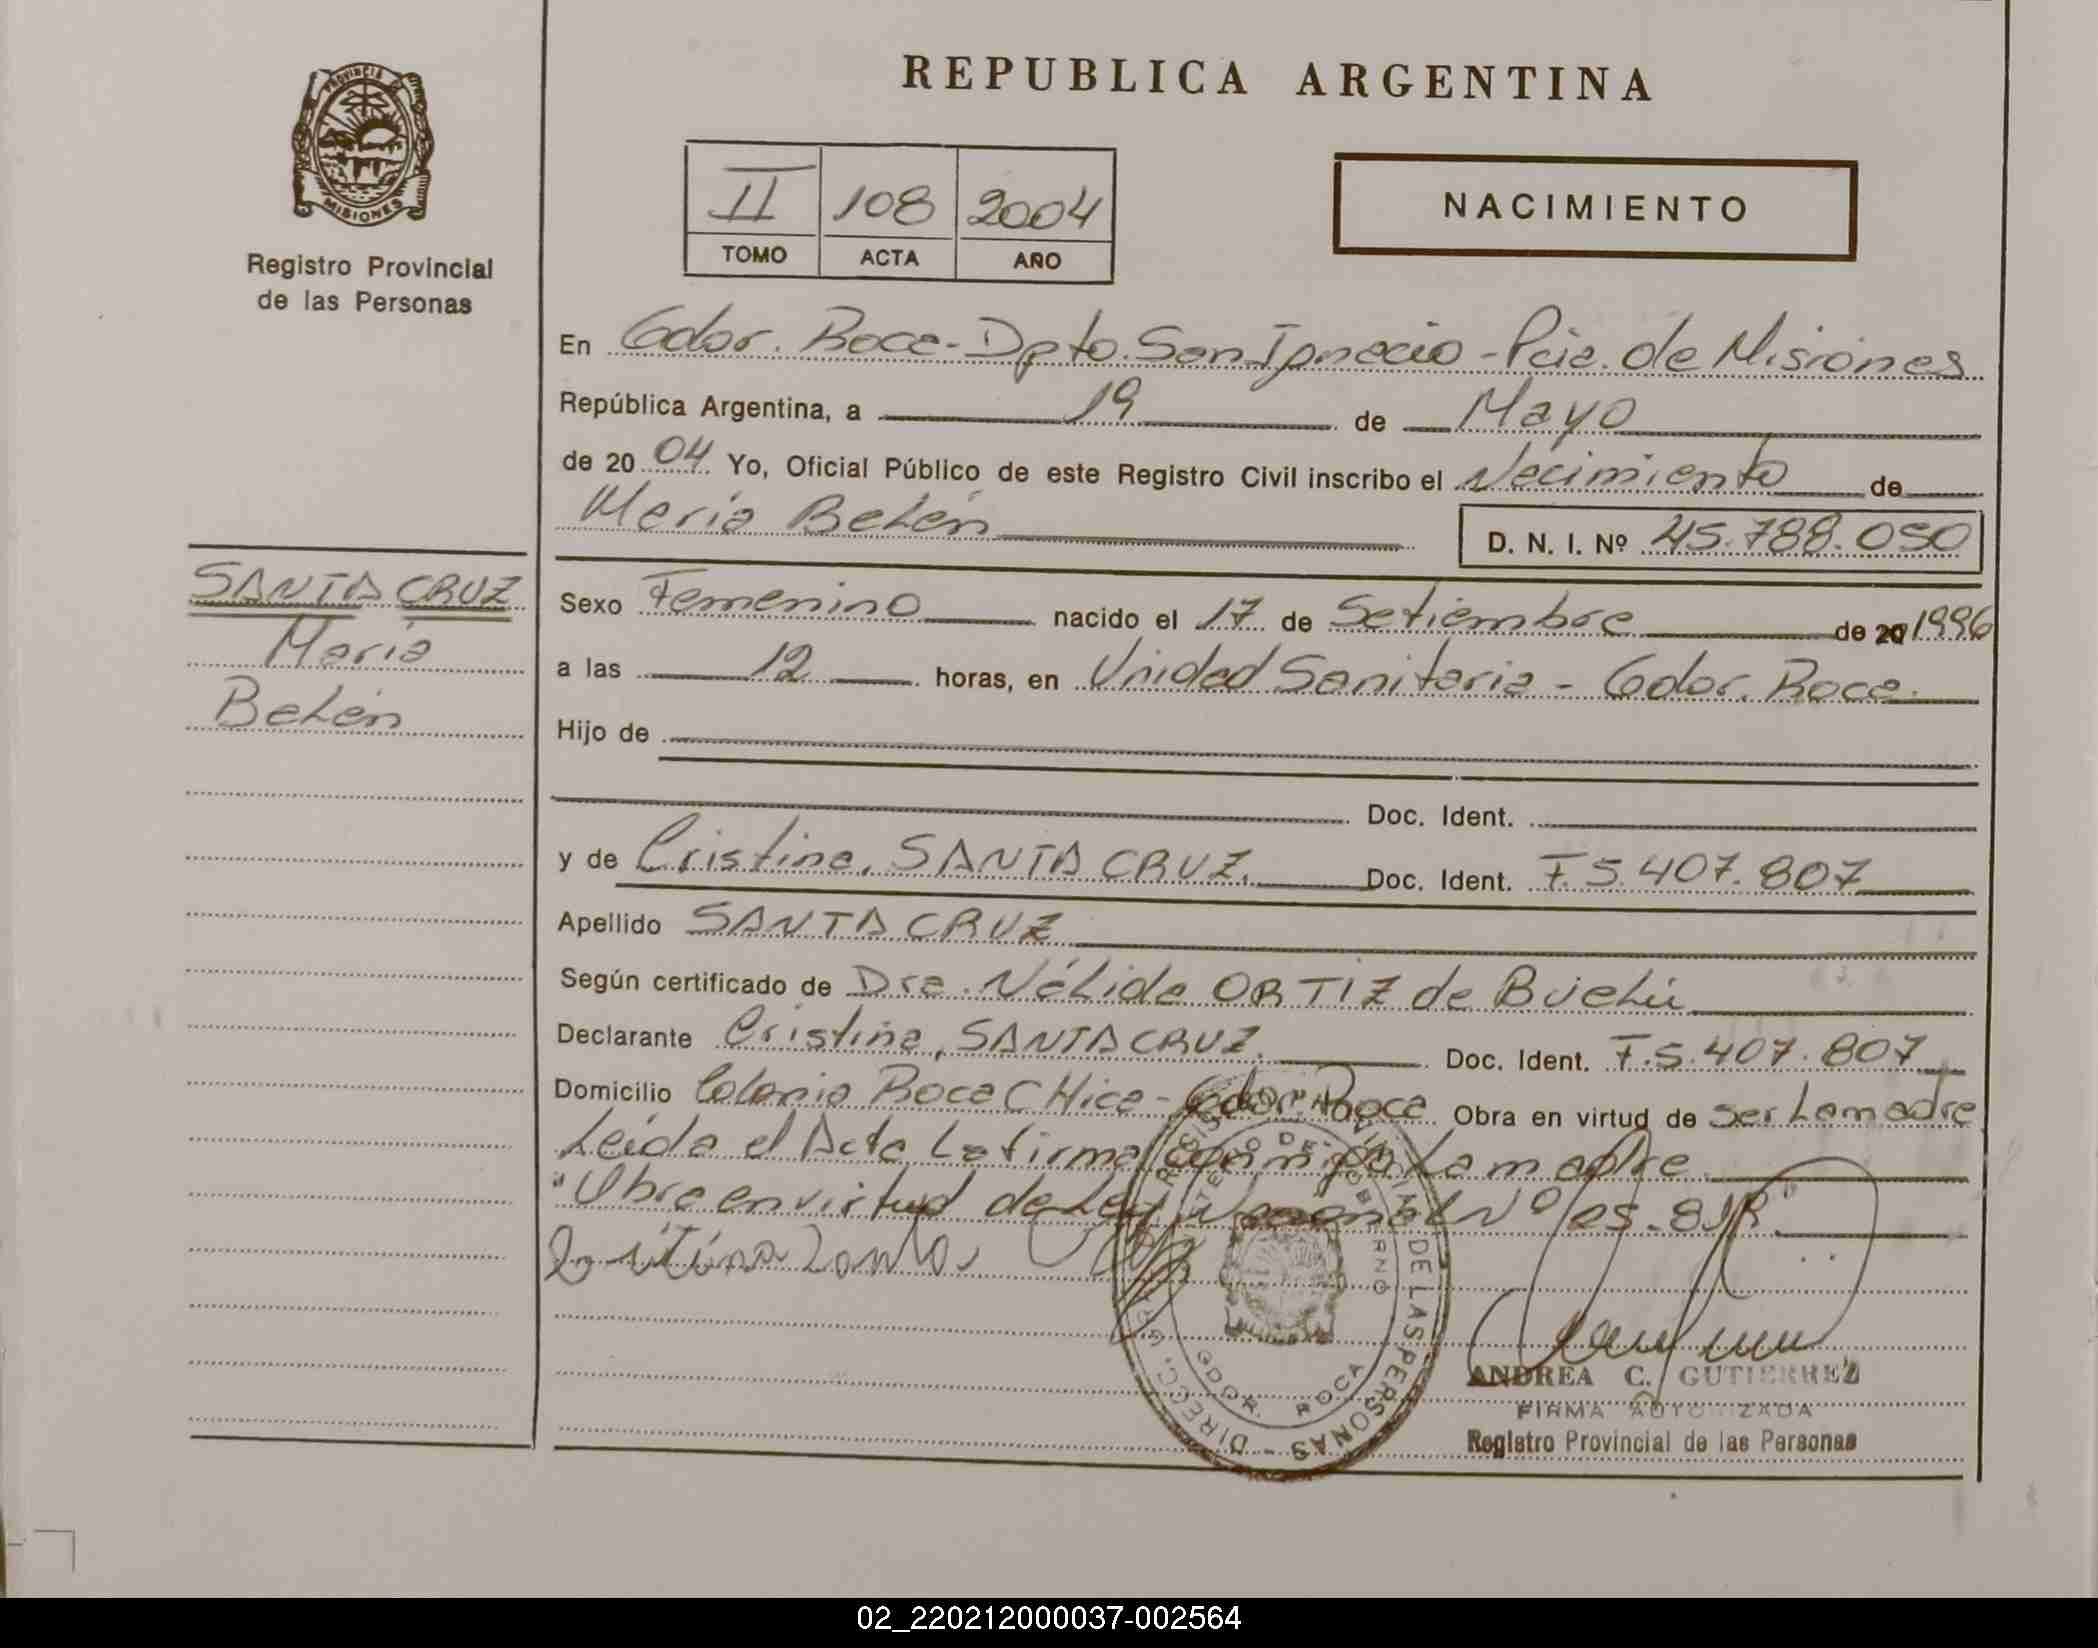 REPUBLICA ARGENTINA
PROVINCIA DE
MISIONES
Registro Provincial
de las Personas
II 108 2004
TOMO ACTA AÑO
NACIMIENTO
En Gdor. Roca - Dpto. San Ignacio - Pcia. de Misiones
República Argentina, a 19 de Mayo
de 20 04 Yo, Oficial Público de este Registro Civil inscribo el Nacimiento de
María Belén D. N. I. Nº 45.788.050
SANTA CRUZ
María
Belén
Sexo Femenino nacido el 17 de Setiembre de 20 1996
a las 12 horas, en Unidad Sanitaria - Gdor. Roca.
Hijo de
Doc. Ident.
y de Cristina, SANTA CRUZ. Doc. Ident. F. 5.407.807
Apellido SANTA CRUZ
Según certificado de Dra. Nélida ORTIZ de
Declarante Cristina, SANTA CRUZ. Doc. Ident. F. 5.407.807
Domicilio Colonia Roca CHica - Gdor. Roca Obra en virtud de ser La madre
Leída el Acta La firma La madre
"Obra en virtud de Ley Nº 25.819"
DIRECC. DE LAS PERSONAS
GDOR. ROCA
ANDREA C. GUTIERREZ
FIRMA AUTORIZADA
Registro Provincial de las Personas
02_220212000037-002564